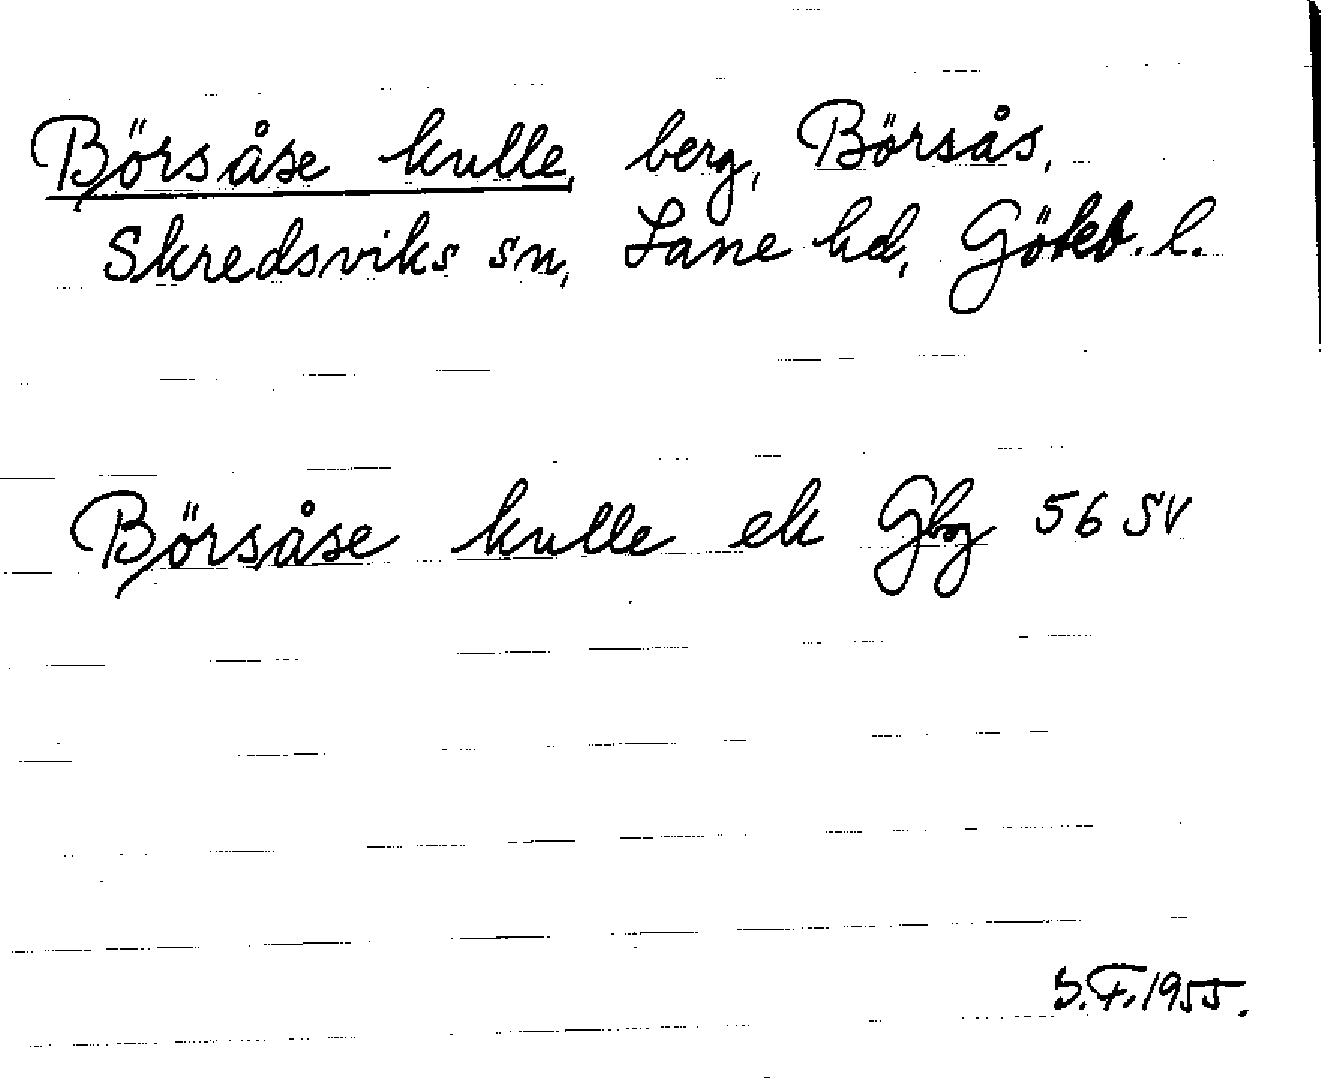 Börsåse kulle, berg, Börsås,
Skredsviks sn, Lane hd, Göteb. l.
Börsåse kulle ek Gbg 56 SV
S.F. 1955.